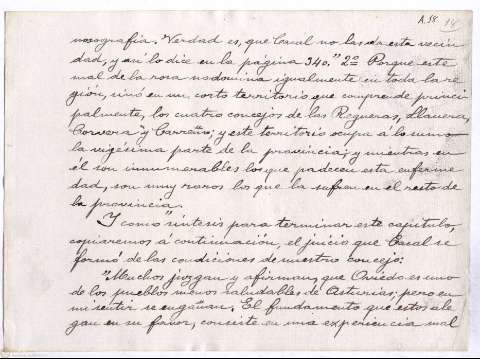 A.58 14
nosografia. Verdad es, que Casal no las da esta vecin
dad, y asi lo dice en la página 340. "2º Porque este
mal de la rosa no domina igualmente en toda la re
gión, sinó en un corto territorio que comprende princi
palmente, los cuatro concejos de las Regueras, Llanera,
Corvera y Carreño; y este territorio ocupa á lo sumo
la vigésima parte de la provincia; y mientras en
él son innumerables los que padecen esta enferme
dad, son muy raros los que la sufren en el resto de
la provincia."
Y como síntesis para terminar este capitulo,
copiaremos á continuación, el juicio que Casal se
formó de las condiciones de nuestro concejo:
"Muchos juzgan y afirman, que Oviedo es uno
de los pueblos menos saludables de Asturias; pero en
mi sentir se engañan. El fundamento que estos ale
gan en su favor, consiste en una experiencia mal